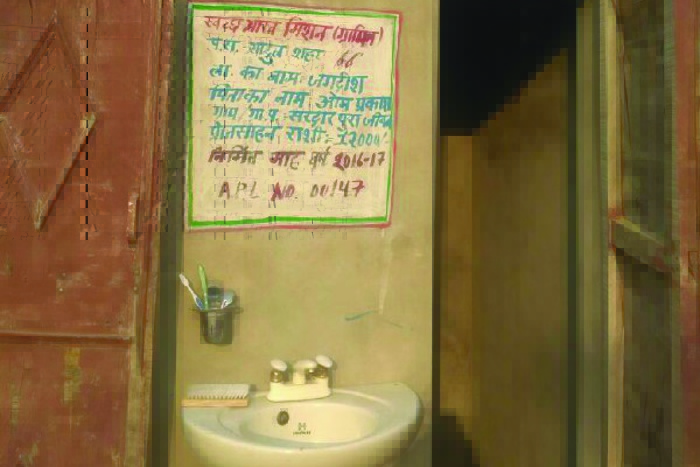 स्वच्छ भारत मिशन (ग्रामिण)
प.स. सादुल शहर 66
ला. का नाम जगदीश
पिता का नाम ओम प्रकाश
ग्राम ग्रा.प. सरदारपुरा जीवन
प्रोत्साहन राशी = 12000
निर्मित माह वर्ष 2016-17
A.P.L NO. 00147